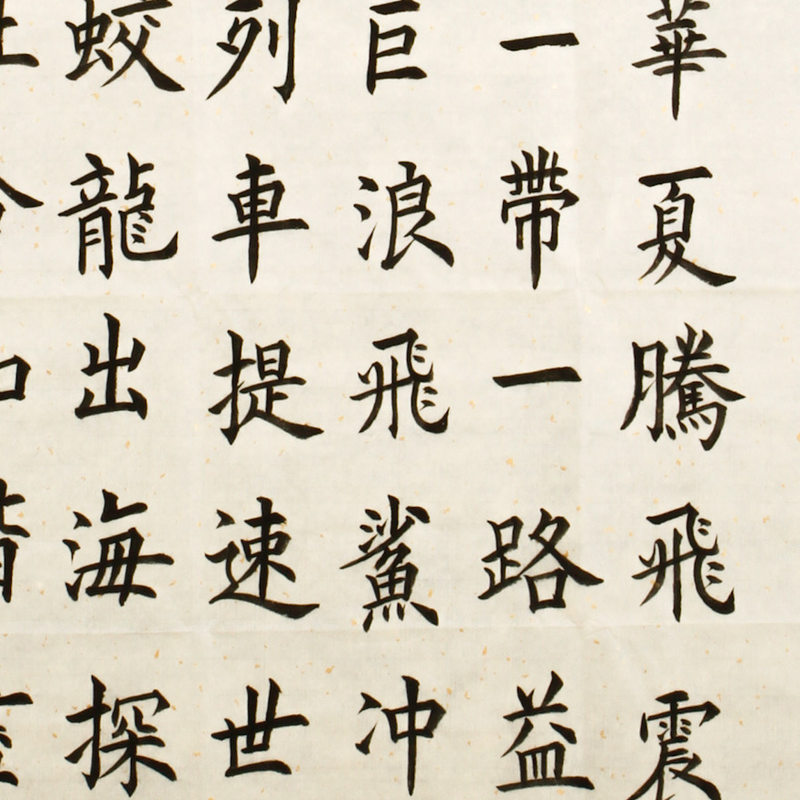 華夏騰飛震
一帶一路益
巨浪飛鯊冲
列車提速世
蛟龍出海探